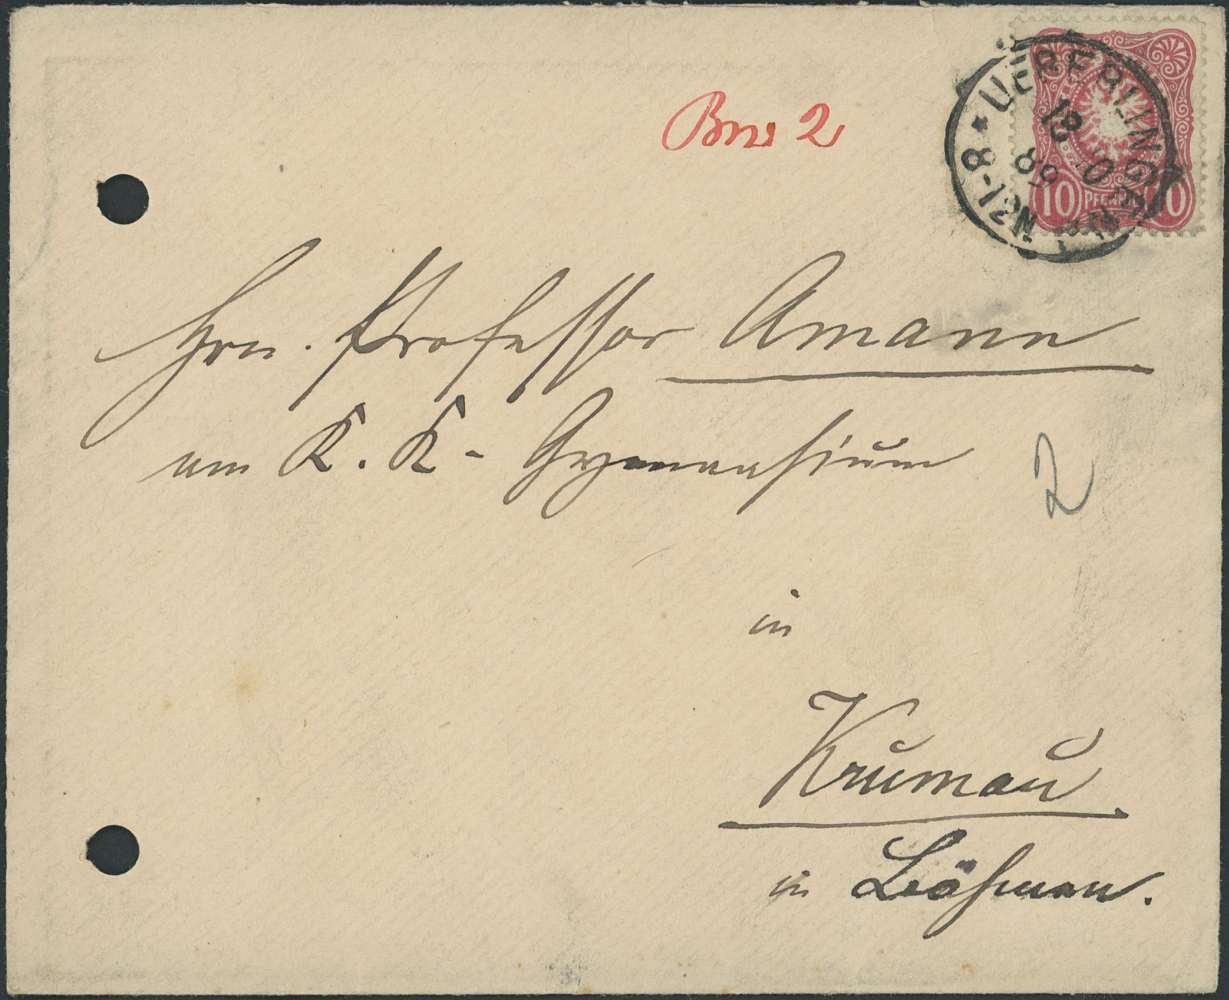 Brw 2
UEBERLINGEN
18 10 89
* N21-8 *
10 PFENNIG 10
Hrn. Professor Amann
am K. K - Gymnasium
2
in
Krumau
in Böhmen.